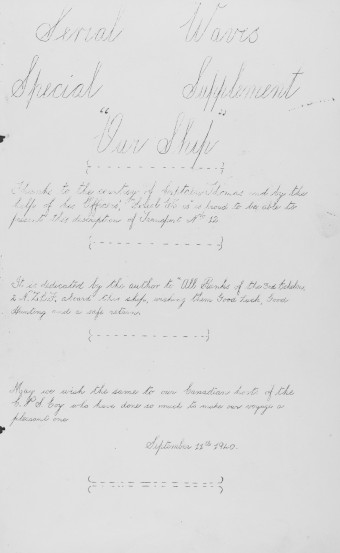 Serial Waves
Special Supplement
"Our Ship"
Thanks to the courtesy of Captain Thomas and by the
help of his Officers, is proud to be able to
present this description of Transport No 12.
It is dedicated by the author to "All Ranks of the 3rd Echelon
2 N.Z.E.F. aboard this ship, wishing them Good Luck, Good
Hunting and a safe return
May we wish the same to our Canadian host of the
C.P.S. Coy who have done so much to make our voyage a
pleasant one
September 11th 1940.